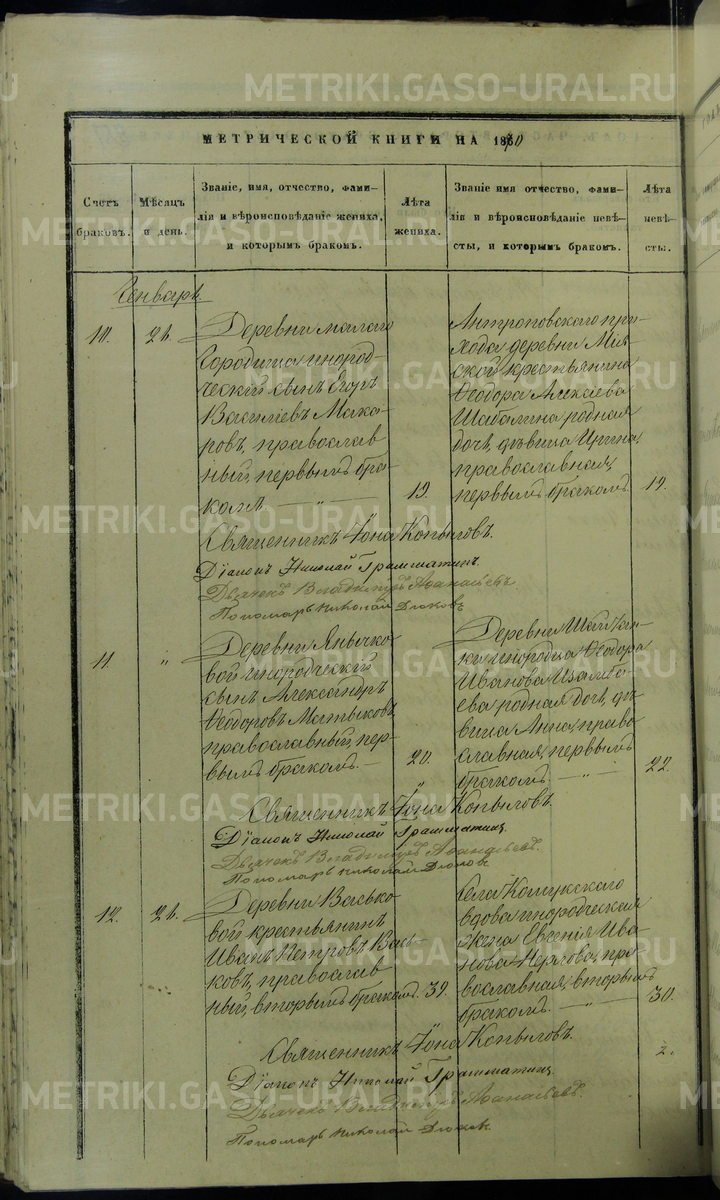 METRIKI.GASO-URAL.RU
МЕТРИЧЕСКОЙ КНИГИ НА 1870
Счетъ браковъ.
Мѣсяцъ и день.
Званіе, имя, отчество, фами-
лія и вѣроисповѣданіе жениха,
и которымъ бракомъ.
Лѣта жениха.
Званіе имя отчество, фами-
лія и вѣроисповѣданіе невѣ-
сты, и которымъ бракомъ.
Лѣта невѣ-
сты.
Генварь
10.
21.
Деревни малаго
Городища инород-
ческій сынъ Егоръ
Василіевъ Мака-
ровъ, православ
ный, первымъ бра-
комъ — " —
19.
Антроповскаго при-
хода деревни
крестьянина
Ѳеодора Алексѣева
Шабалина родная
дочь, дѣвица Ирина,
православная,
первымъ бракомъ.
19.
Священникъ Іона Копыловъ.
Діаконъ Николай Грамматинъ.
Дьячекъ Владимиръ Аѳанасьевъ
Пономарь Николай Дюковъ
11.
"
Деревни Янычко-
вой инородческій
сынъ Александръ
Ѳеодоровъ Матыковъ,
православный, пер-
вымъ бракомъ. —
20.
"
Деревни
инородца Ѳеодора
Иванова
родная дочь, дѣ-
вица Анна, право-
славная, первымъ
бракомъ — " —
22.
Священникъ Іона Копыловъ.
Діаконъ Николай Грамматинъ.
Дьячекъ Владимиръ Аѳанасьевъ.
Пономарь Николай Дюковъ
12.
21.
Деревни Васько-
вой крестьянинъ
Иванъ Петровъ Вась-
ковъ, православ
ный, вторымъ бракомъ.
39.
Села Кошукскаго
вдова инородческая
жена Евгенія Ива-
нова православная, вторымъ
бракомъ. — " —
30.
Священникъ Іона Копыловъ.
2.
Діаконъ Николай Грамматинъ
Дьячекъ Владимиръ Аѳанасьевъ.
Пономарь Николай Дюковъ